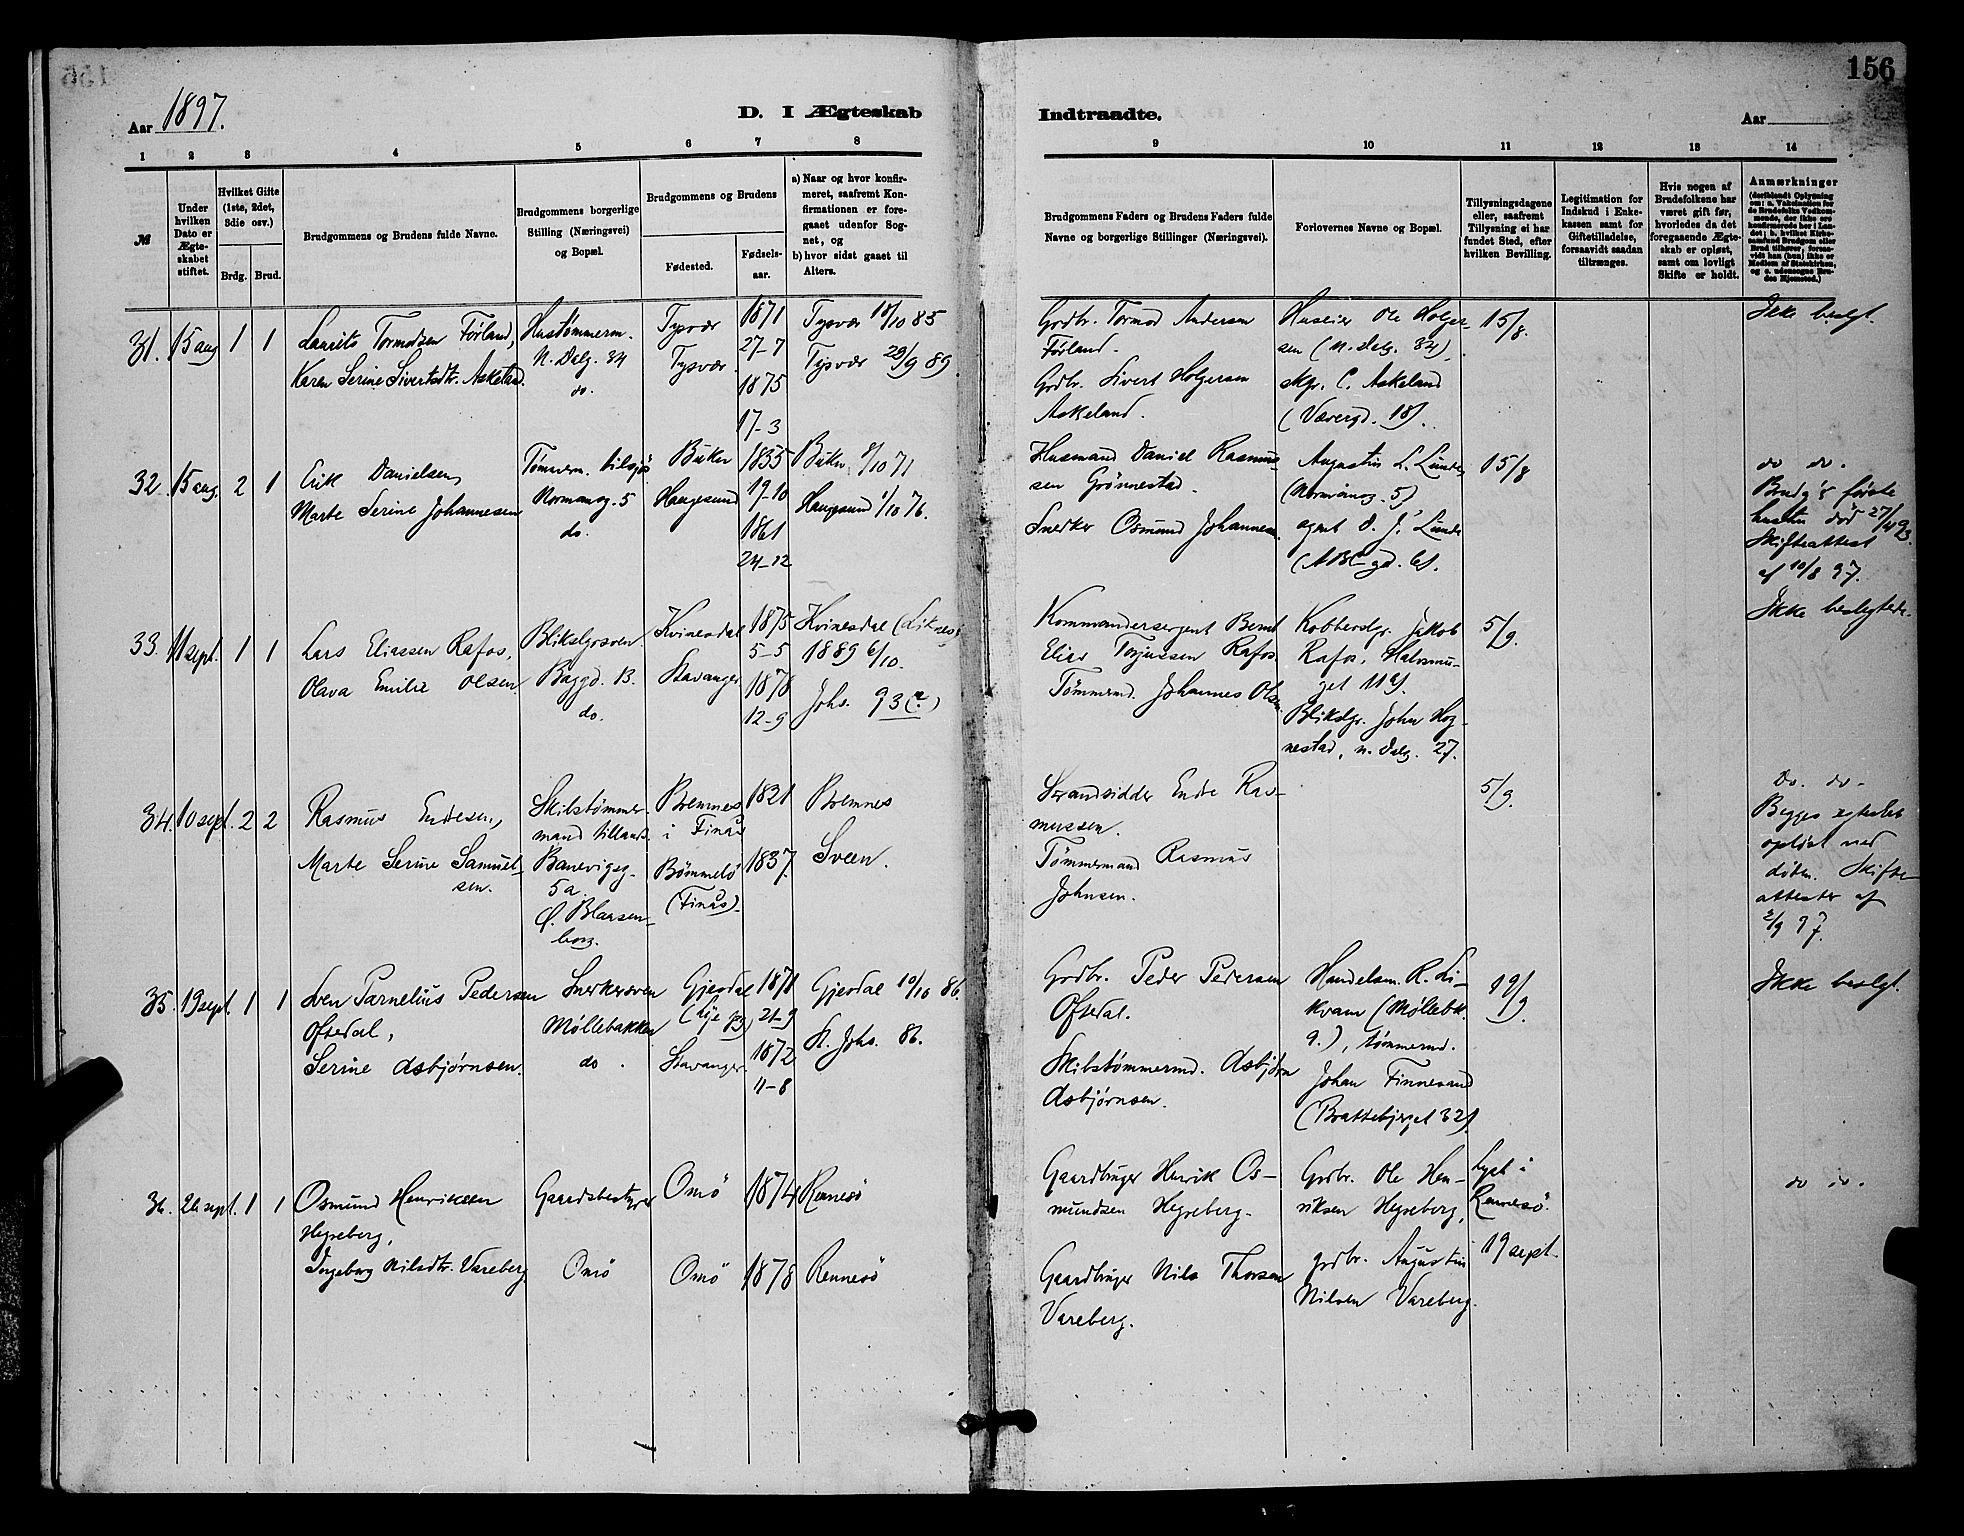 156
Aar 1897.
D. I Ægteskab
Indtraadte.
Aar
1 2 3 4 5 6 7 8
9 10 11 12 13 14
№
Under hvilken Dato er Ægteskabet stiftet.
Hvilket Gifte (1ste, 2det, 3die osv.)
Brdg. Brud.
Brudgommens og Brudens fulde Navne.
Brudgommens borgerlige Stilling (Næringsvei) og Bopæl.
Brudgommens og Brudens
Fødested.
Fødselsaar.
a) Naar og hvor konfirmeret, saafremt Konfirmationen er foregaaet udenfor Sognet, og
b) hvor sidst gaaet til Alters.
Brudgommens Faders og Brudens Faders fulde Navne og borgerlige Stillinger (Næringsvei).
Forlovernes Navne og Bopæl.
Tillysningsdagene eller, saafremt Tillysning ei har fundet Sted, efter hvilken Bevilling.
Legitimation for Indskud i Enkekassen samt for Giftetilladelse, forsaavidt saadan tiltrænges.
Hvis nogen af Brudefolkene har været gift før, hvorledes da det foregaaende Ægteskab er opløst, samt om lovligt Skifte er holdt.
Anmærkninger
31. 15 aug 1 1
Laurits Tormodsen Førland,
Karen Serine Sivertsdtr. Askeland
Hustømmerm.
N. Dalg. 34
do.
Tysvær
Tysvær
1871
27-7
1875
17-3
Tysvær 10/10 85
Tysvær 29/9 89
Grdbr. Tormod Andersen
Førland.
Grdbr. Sivert Holgersen
Askeland.
Huseier Ole Holger-
sen (N. Dalg. 34),
skpr. C. Askeland
(Værergd. 18).
15/8.
Ikke beslgt.
32. 15 aug. 2 1
Erik Danielsen,
Marte Serine Johannesen
Tømmerm. tilsjøs
Normansg. 5
do.
Buken
Haugesund
1835
19-10
1861
24-12
Buken 8/10 71
Haugesund 1/10 76.
Husmand Daniel Rasmus-
sen Grønnestad.
Snedker Osmund Johannesen.
Augustin L. Lunde,
(Normansg. 5)
agent d. J. Lunde
(ABC gd. 6).
15/8
do do.
Brudg's første
hustru død 27/4 93.
Skifteattest
af 10/8 97.
33. 11 sept. 1 1
Lars Eliassen Rafos,
Olava Emilie Olsen
Blikslgrsven
Baggd. 13.
do.
Kvinesdal
Stavanger
1875
5-5
1878
12-9
Kvinesdal (Liknes)
1889 6/10.
Johs. 93 (?)
Kommandersergent Bernt
Elias Torjussen Rafos.
Tømmermd. Johannes Olsen
Kobberslgr. Jakob
Rafos,
Blikslgr. John Hog-
nestad, n. Dalg. 27.
5/9.
Ikke beslegtede.
34. 10 sept. 2 2
Rasmus Endresen,
Marte Serine Samuel-
sen.
Skibstømmer-
mand tillands.
Banevigsg.
5 a.
Ø. Blaasen-
borg.
Bremnes
i Finås
Bømmelø
(Finås).
1821
1837.
Bremnes
Sveen.
Strandsidder Endre Ras-
mussen.
Tømmermand Rasmus
Johnsen.
5/9.
Do. do.
Begges egteskab
opløst ved
døden. Skifte-
attester af
2/9 97.
35. 19 sept. 1 1
Sven Parnelius Pedersen
Oftedal,
Serine Asbjørnsen.
Snekkersven
Møllebakken
do.
Gjesdal
Stavanger
1871
21-9
1872
11-8
Gjesdal 10/10 86.
St. Johs. 86.
Grdbr. Peder Pedersen
Oftedal.
Skibstømmermd. Asbjørn
Asbjørnsen.
Handelsm. R. Li-
kvam (Møllebk.
9.), tømmermd.
Johan Finnesand
(Brattebjerget 32).
19/9.
Ikke beslgt.
36. 26 sept. 1 1
Osmund Henriksen
Hegreberg,
Ingeborg Nilsdtr. Vareberg
Gaardsbestyrer
Omø
Omø
Omø
1874
1878
Rennesø
Rennesø
Gaardbruger Henrik Os-
mundsen Hegreberg.
Gaardbruger Nils Thorsen
Vareberg.
Grdbr. Ole Hen-
riksen Hegreberg,
grdbr. Augustin
Nilsen Vareberg.
Lyst i
Rennesø.
19 sept.
do do.